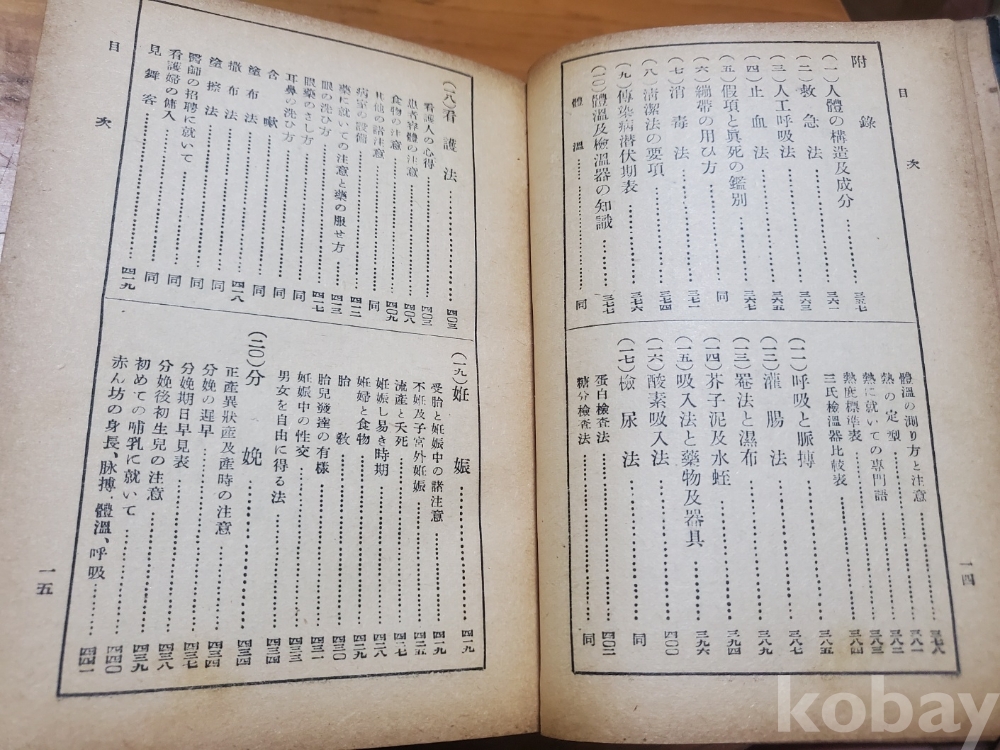 目次
附錄
(一)人體の構造及成分……三五七
(二)救急法……三六一
(三)人工呼吸法……三六三
(四)止血法……三六五
(五)假項と眞死の鑑別……三六七
(六)繃帶の用ひ方……同
(七)消毒法……三七一
(八)淸潔法の要項……三七四
(九)傳染病潛伏期表……三七六
(一〇)體溫及檢溫器の知識……三七七
體溫……同
體溫の測り方と注意……三七八
熱の定型……三八一
熱に就いての專門語……三八二
熱度標準表……三八三
三氏檢溫器比較表……三八四
(一一)呼吸と脈搏……三八五
(一二)灌腸法……三八七
(一三)罨法と濕布……三八九
(一四)芥子泥及水蛭……三九四
(一五)吸入法と藥物及器具……三九六
(一六)酸素吸入法……四〇〇
(一七)檢尿法……同
蛋白檢査法……四〇二
糖分檢査法……同
一四
(一八)看護法……四〇三
看護人の心得……四〇三
患者容體の注意……四〇八
食物の注意……四〇九
其他の諸注意……同
病室の設備……四一二
藥に就いての注意と藥の服せ方……四一三
眼の洗ひ方……四一七
眼藥のさし方……同
耳鼻の洗ひ方……同
含嗽……同
塗布法……同
撒布法……四一八
塗擦法……同
醫師の招聘に就いて……同
看護婦の傭入……同
見舞客……四一九
(一九)妊娠……四一九
受胎と妊娠中の諸注意……四一九
不妊及子宮外妊娠……四二五
流產と夭死……四二七
妊娠し易き時期……四二八
妊婦と食物……四二九
胎教……四三〇
胎兒發達の有樣……四三一
妊娠中の性交……四三三
男女を自由に得る法……四三三
(二〇)分娩……四三四
正產異狀產及產時の注意……四三四
分娩の遲早……四三七
分娩期日早見表……四三八
分娩後初生兒の注意……四三九
初めての哺乳に就いて……四四〇
赤ん坊の身長、脉搏、體溫、呼吸……四四一
目次
一五
kobay